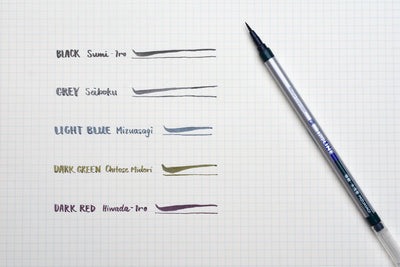 BLACK Sumi-Iro
GREY Seiboku
LIGHT BLUE Mizuasagi
DARK GREEN Chitose Midori
DARK RED Hiwada-Iro